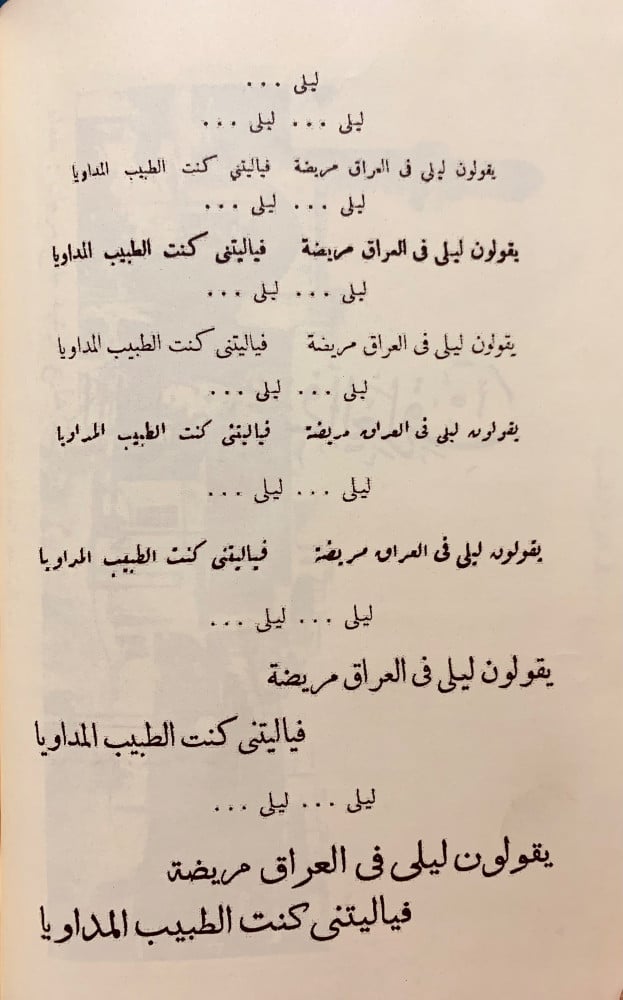 ليلى ...
ليلى ... ليلى ...
يقولون ليلى فى العراق مريضة فياليتني كنت الطبيب المداويا
ليلى ... ليلى ...
يقولون ليلى فى العراق مريضة فياليتنى كنت الطبيب المداويا
ليلى ... ليلى ...
يقولون ليلى فى العراق مريضة فياليتنى كنت الطبيب المداويا
ليلى ... ليلى ...
يقولون ليلى فى العراق مريضة فياليتنى كنت الطبيب المداويا
ليلى ... ليلى ...
يقولون ليلى فى العراق مريضة فياليتنى كنت الطبيب المداويا
ليلى ... ليلى ...
يقولون ليلى فى العراق مريضة
فياليتنى كنت الطبيب المداويا
ليلى ... ليلى ...
يقولون ليلى فى العراق مريضة
فياليتنى كنت الطبيب المداويا